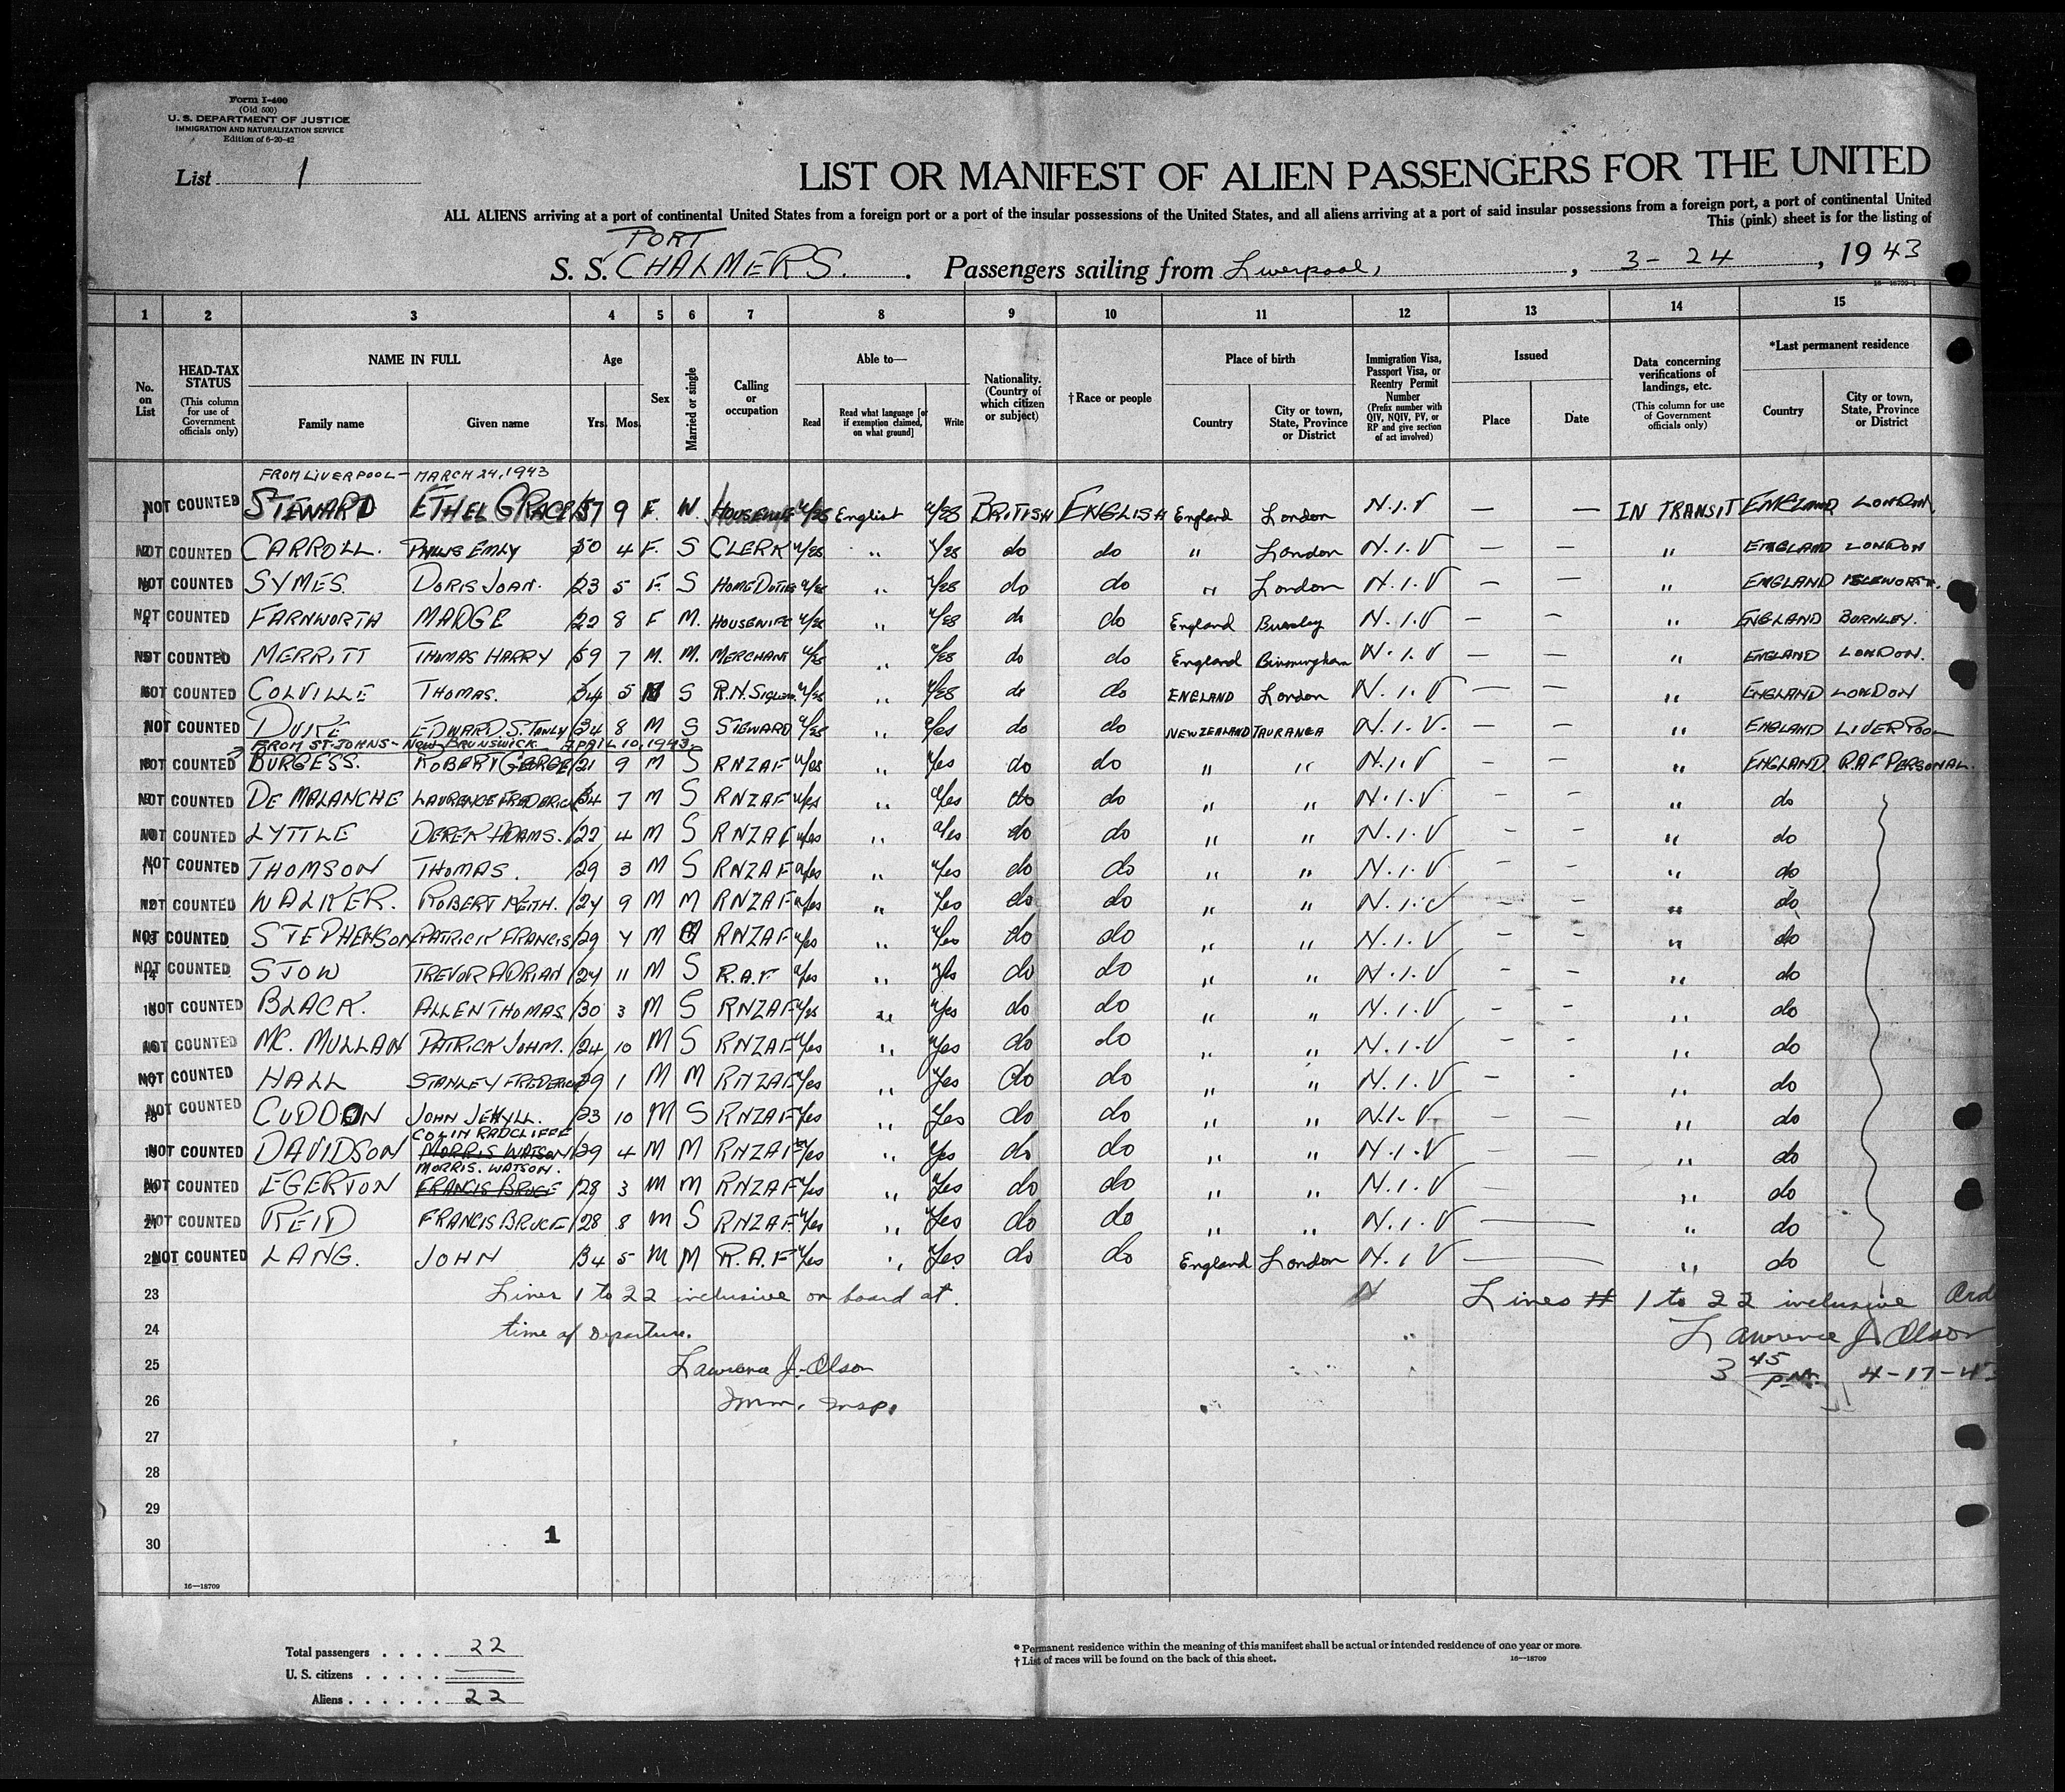 Form I-400
(Old 500)
U. S. DEPARTMENT OF JUSTICE
IMMIGRATION AND NATURALIZATION SERVICE
Edition of 6-20-42
List 1
LIST OR MANIFEST OF ALIEN PASSENGERS FOR THE UNITED
ALL ALIENS arriving at a port of continental United States from a foreign port or a port of the insular possessions of the United States, and all aliens arriving at a port of said insular possessions from a foreign port, a port of continental United
This (pink) sheet is for the listing of
PORT
S. S. CHALMERS. Passengers sailing from Liverpool, , 3-24 , 1943
1 2 3 4 5 6 7 8 9 10 11 12 13 14 15
No. on List
HEAD-TAX STATUS (This column for use of Government officials only)
NAME IN FULL Family name Given name
Age Yrs. Mos.
Sex
Married or single
Calling or occupation
Able to— Read Read what language [or if exemption claimed, on what ground] Write
Nationality. (Country of which citizen or subject)
†Race or people
Place of birth Country City or town, State, Province or District
Immigration Visa, Passport Visa, or Reentry Permit Number (Prefix number with QIV, NQIV, PV, or RP and give section of act involved)
Issued Place Date
Data concerning verifications of landings, etc. (This column for use of Government officials only)
*Last permanent residence Country City or town, State, Province or District
FROM LIVERPOOL - MARCH 24, 1943
1 NOT COUNTED STEWARD ETHEL GRACE 57 9 F. W. HOUSEWIFE yes English yes BRITISH ENGLISH England London N.I.V — — IN TRANSIT ENGLAND LONDON.
2 NOT COUNTED CARROLL. EMILY 50 4 F. S CLERK yes " yes do do " London N.I.V — — " ENGLAND LONDON
3 NOT COUNTED SYMES. DORIS JOAN. 23 5 F. S HOME DUTIES yes " yes do do " London N.I.V — — " ENGLAND ISLEWORTH.
4 NOT COUNTED FARNWORTH MADGE 22 8 F M. HOUSEWIFE yes " yes do do England Burnley N.I.V — — " ENGLAND BURNLEY.
5 NOT COUNTED MERRITT THOMAS HARRY 59 7 M. M. MERCHANT yes " yes do do England Birmingham N.I.V — — " ENGLAND LONDON.
6 NOT COUNTED COLVILLE THOMAS. 34 5 M S R.N. yes " yes do do ENGLAND London N.I.V — — " ENGLAND LONDON
7 NOT COUNTED DUKE EDWARD STANLY 34 8 M S STEWARD yes " yes do do NEW ZEALAND TAURANGA N.I.V. — — " ENGLAND LIVERPOOL
FROM ST. JOHNS - NEW BRUNSWICK APRIL 10, 1943.
8 NOT COUNTED BURGESS. ROBERT GEORGE 21 9 M S RNZAF yes " yes do do " " N.I.V — — " ENGLAND R.A.F PERSONAL.
9 NOT COUNTED DE MALANCHE LAURENCE FREDERICK 34 7 M S RNZAF yes " yes do do " " N.I.V — — " do
10 NOT COUNTED LYTTLE DEREK ADAMS. 22 4 M S RNZAF yes " yes do do " " N.I.V — — " do
11 NOT COUNTED THOMSON THOMAS. 29 3 M S RNZAF yes " yes do do " " N.I.V — — " do
12 NOT COUNTED WALKER. ROBERT KEITH. 24 9 M M RNZAF yes " yes do do " " N.I.V — — " do
13 NOT COUNTED STEPHENSON PATRICK FRANCIS 29 4 M M RNZAF yes " yes do do " " N.I.V — — " do
14 NOT COUNTED STOW TREVOR ADRIAN 24 11 M S R.A.F yes " yes do do " " N.I.V — — " do
15 NOT COUNTED BLACK. ALLEN THOMAS 30 3 M S RNZAF yes " yes do do " " N.I.V — — " do
16 NOT COUNTED MC. MULLAN PATRICK JOHM. 24 10 M S RNZAF yes " yes do do " " N.I.V — — " do
17 NOT COUNTED HALL STANLEY FREDERICK 29 1 M M RNZAF yes " yes do do " " N.I.V — — " do
18 NOT COUNTED CUDDON JOHN JEKYLL. 23 10 M S RNZAF yes " yes do do " " N.I.V — — " do
COLIN RADCLIFFE
19 NOT COUNTED DAVIDSON MORRIS WATSON 29 4 M M RNZAF yes " yes do do " " N.I.V — — " do
MORRIS. WATSON.
20 NOT COUNTED EGERTON FRANCIS BRUCE 28 3 M M RNZAF yes " yes do do " " N.I.V — " do
21 NOT COUNTED REID FRANCIS BRUCE 28 8 M S RNZAF. yes " yes do do " " N.I.V — " do
22 NOT COUNTED LANG. JOHN 34 5 M M R.A.F yes " yes. do do England London N.I.V — " do
23 Lines 1 to 22 inclusive on board at. N Lines # 1 to 22 inclusive
24 time of Departure. Lawrence J. Olson
25 Lawrence J. Olson 3 45 p.m. 4-17-43
26 Imm. Insp.
27
28
29
30
1
16—18709
Total passengers . . . . 22
U. S. citizens . . . . . —
Aliens . . . . . . 22
* Permanent residence within the meaning of this manifest shall be actual or intended residence of one year or more.
† List of races will be found on the back of this sheet.
16—18709